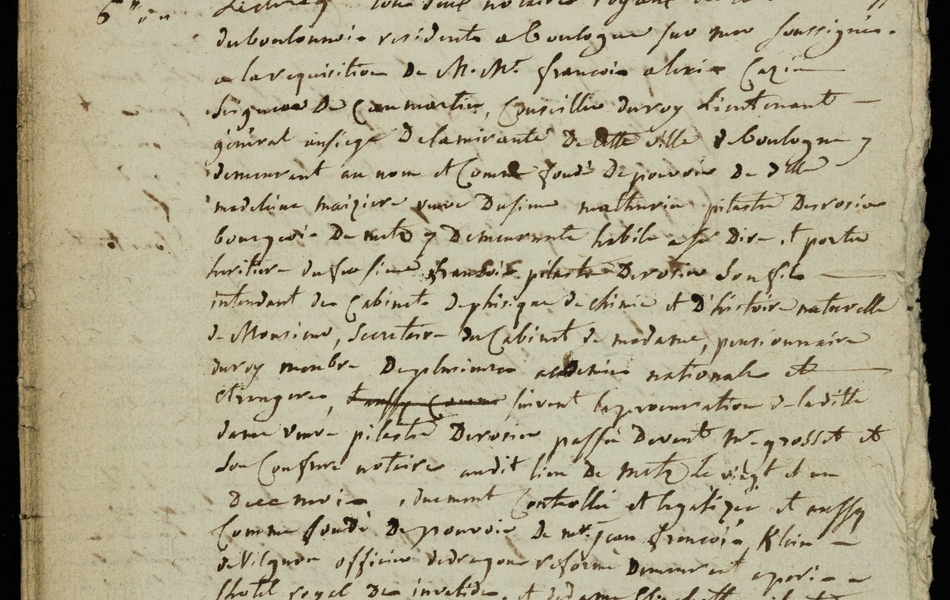 notaires royaux
du boulonnois residents a boulogne sur mer soussignés.
a la requisition De M. Me françois alexis Cazin
Seigneur De Caumartin, Conseiller du roy Lieutenant
général au siege De lamirauté De cette ville de boulogne y
demeurant au nom et Comme fondé De pouvoir De dlle
madeleine maiziere veuve Du sieur mathurin pilastre Derosier
bourgeois De metz y Demeurante habile a se Dire et porter
heritiere du feu sieur françois pilastre Derosier Son fils
intendant des Cabinets de phisique de chimie et D'histoire naturelle
de Monsieur, Secretaire du Cabinet de madame, pensionnaire
du roy membre De plusieurs academies nationales et
étrangeres, suivant la procuration de ladite
dame veuve pilastre Derosier passée Devant Me grosset et
Son Confrere notaire audit lieu De metz le vingt et un
De ce mois, duement Controllée et legalizée et aussy
Comme fondé De pouvoir de mr. jean françois Klein
officier de dragons reformé Demeurant a paris a
lhotel royal des invalides, et de dame